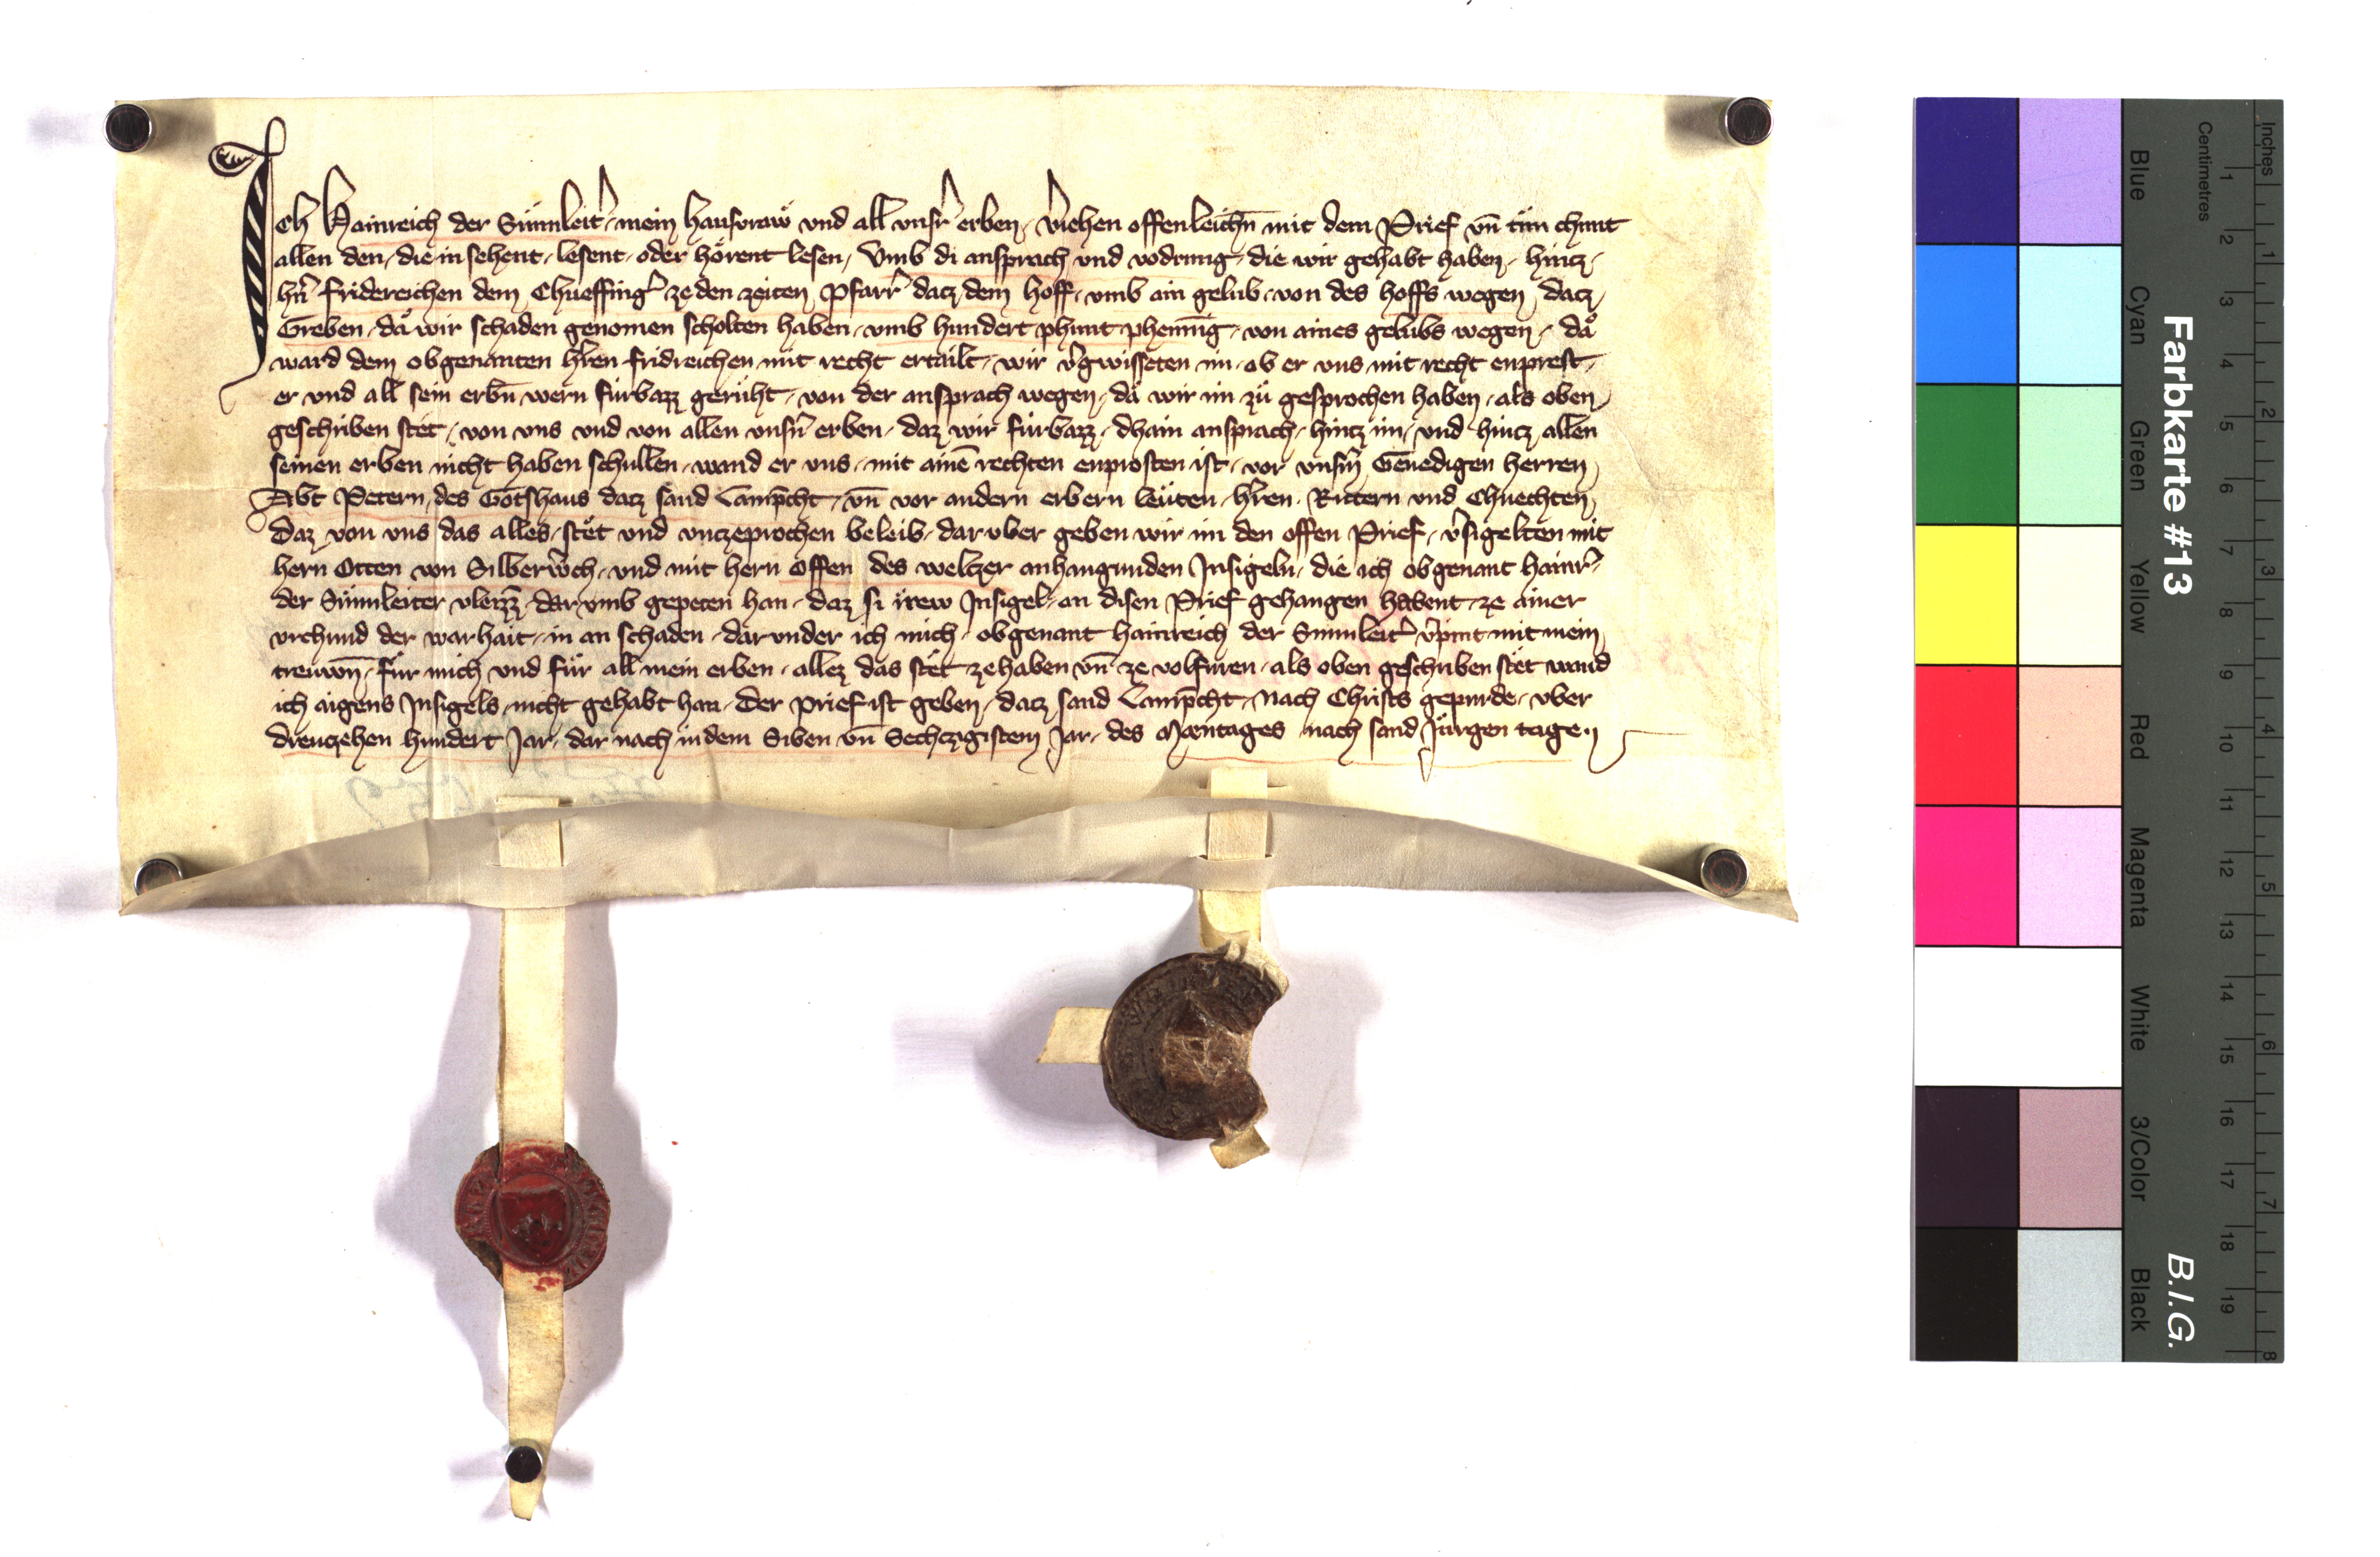 Ich Hainreich der Sůnnleitr̓ mein hausvraẘ vnd all vnsr̓ erben, v̓iehen offenleichn̄ mit dem Prief vn̄ tůn chunt
allen den, die in sehent, lesent, oder hörent lesen, Vmb di ansprach vnd vodrung, die wir gehabt haben, hintz,
hn̓ fridereichen dem Chueffing̓ ze den zeiten Pfarr̓ datz dem hoff, vmb ain gelub, von des hoffs wegen datz
Greben, dǎ wir schaden genomen scholten haben, vmb hundert phunt phennīg, von aines gelubs wegen, dǎ
ward dem obgenanten hr̓en fridreichen mit recht ertailt, wir v̓gwisseten im, ob er vns mit recht enprest,
er vnd all sein erbn̄ wern fürbazz gerůht, von der ansprach wegen, dǎ wir im zů gesprochen haben, als oben,
geschriben stet, von vns vnd von allen vnsn̓ erben, daz wir fürbazz, dhain ansprach, hintz im, vnd hintz allen
seinen erben nicht haben schullen, wand er vns, mit ainē rechten enprosten ist, vor vnsm̓ Genedigen herren
Abt Petern, des Gotshaus datz sand Lamp̄cht, vn̄ vor andern erbern leůten, hr̓en, Rittern vnd Chnechten,
Daz von vns das alles, stět vnd vntzeprochen beleib, dar vber geben wir im den offen Prief, v̓sigelten mit
hern Otten von Silberw̓ch, vnd mit hern Offen des weltzer anhangunden Insigeln, die ich obgenant hainr̓,
der Sůnnleiter vleizz̄, dar vmb gepeten han, daz si irew Insigel, an disen Prief gehangen habent, ze ainer
vrchund der warhait, in an schaden, dar vnder ich mich, obgenant hainreich der Sunnleitr̓ v̓pint mit mein
trewn̄, für mich vnd für all mein erben, allez das stět ze haben vn̄ ze volfüren, als oben geschriben stět wand
ich aigens Insigels, nicht gehabt han, Der prief ist geben, datz sand Lamp̄cht, Nach Christs gepurde, vber
dreutzehen hundert Jar, dar nach in dem Siben vn̄ Sechtzigistem Jar, des Mæntages nach sand Jürgen tage.
Farbkarte #13
B.I.G.
Inches
Centimetres
1 2 3 4 5 6 7 8 9 10 11 12 13 14 15 16 17 18 19
1 2 3 4 5 6 7 8
Blue
Cyan
Green
Yellow
Red
Magenta
White
3/Color
Black